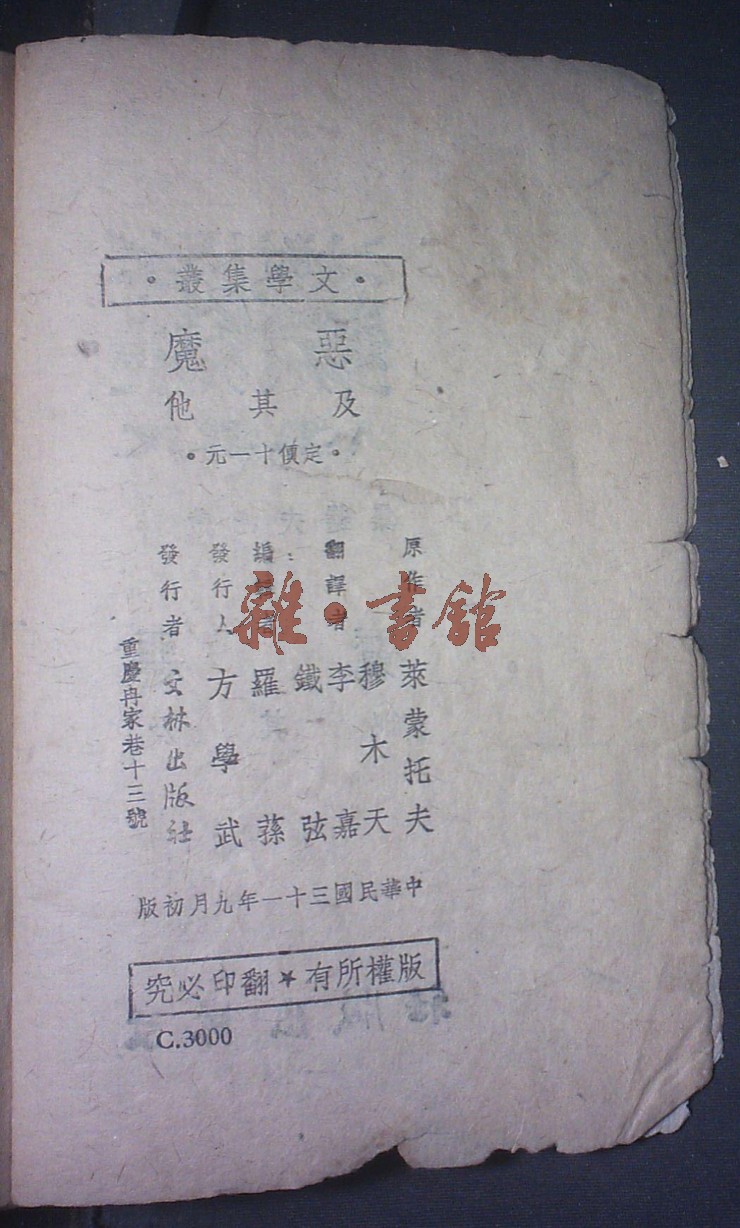 •文學集叢•
惡魔
及其他
•定價十一元•
原作者 萊蒙托夫
翻譯者 穆木天
李嘉
鐵弦
編 羅蓀
發行人 方學武
發行者 文林出版社
重慶冉家巷十三號
中華民國三十一年九月初版
版權所有★翻印必究
C.3000
雜·書館